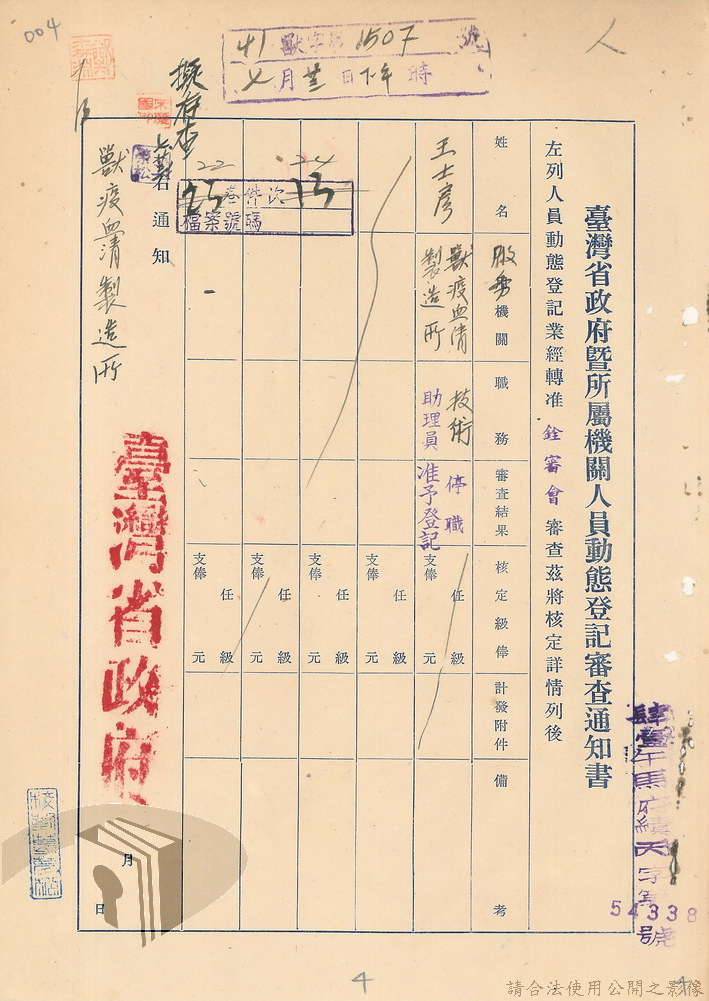 004
41 獸字第1507號
七月廿三日下午 時
臺灣省政府暨所屬機關人員動態登記審查通知書
左列人員動態登記業經轉准 銓審會 審查茲將核定詳情列後
姓名
服務機關
職務
審查結果
核定級俸
計發附件
備考
王士彥
獸疫血清製造所
技術助理員
停職
准予登記
任 級
支俸 元
任 級
支俸 元
任 級
支俸 元
任 級
支俸 元
任 級
支俸 元
24
22
卷件次
檔案號碼
右通知
獸疫血清製造所
臺灣省政府
月
日
54338
號
4
4
請合法使用公開之影像